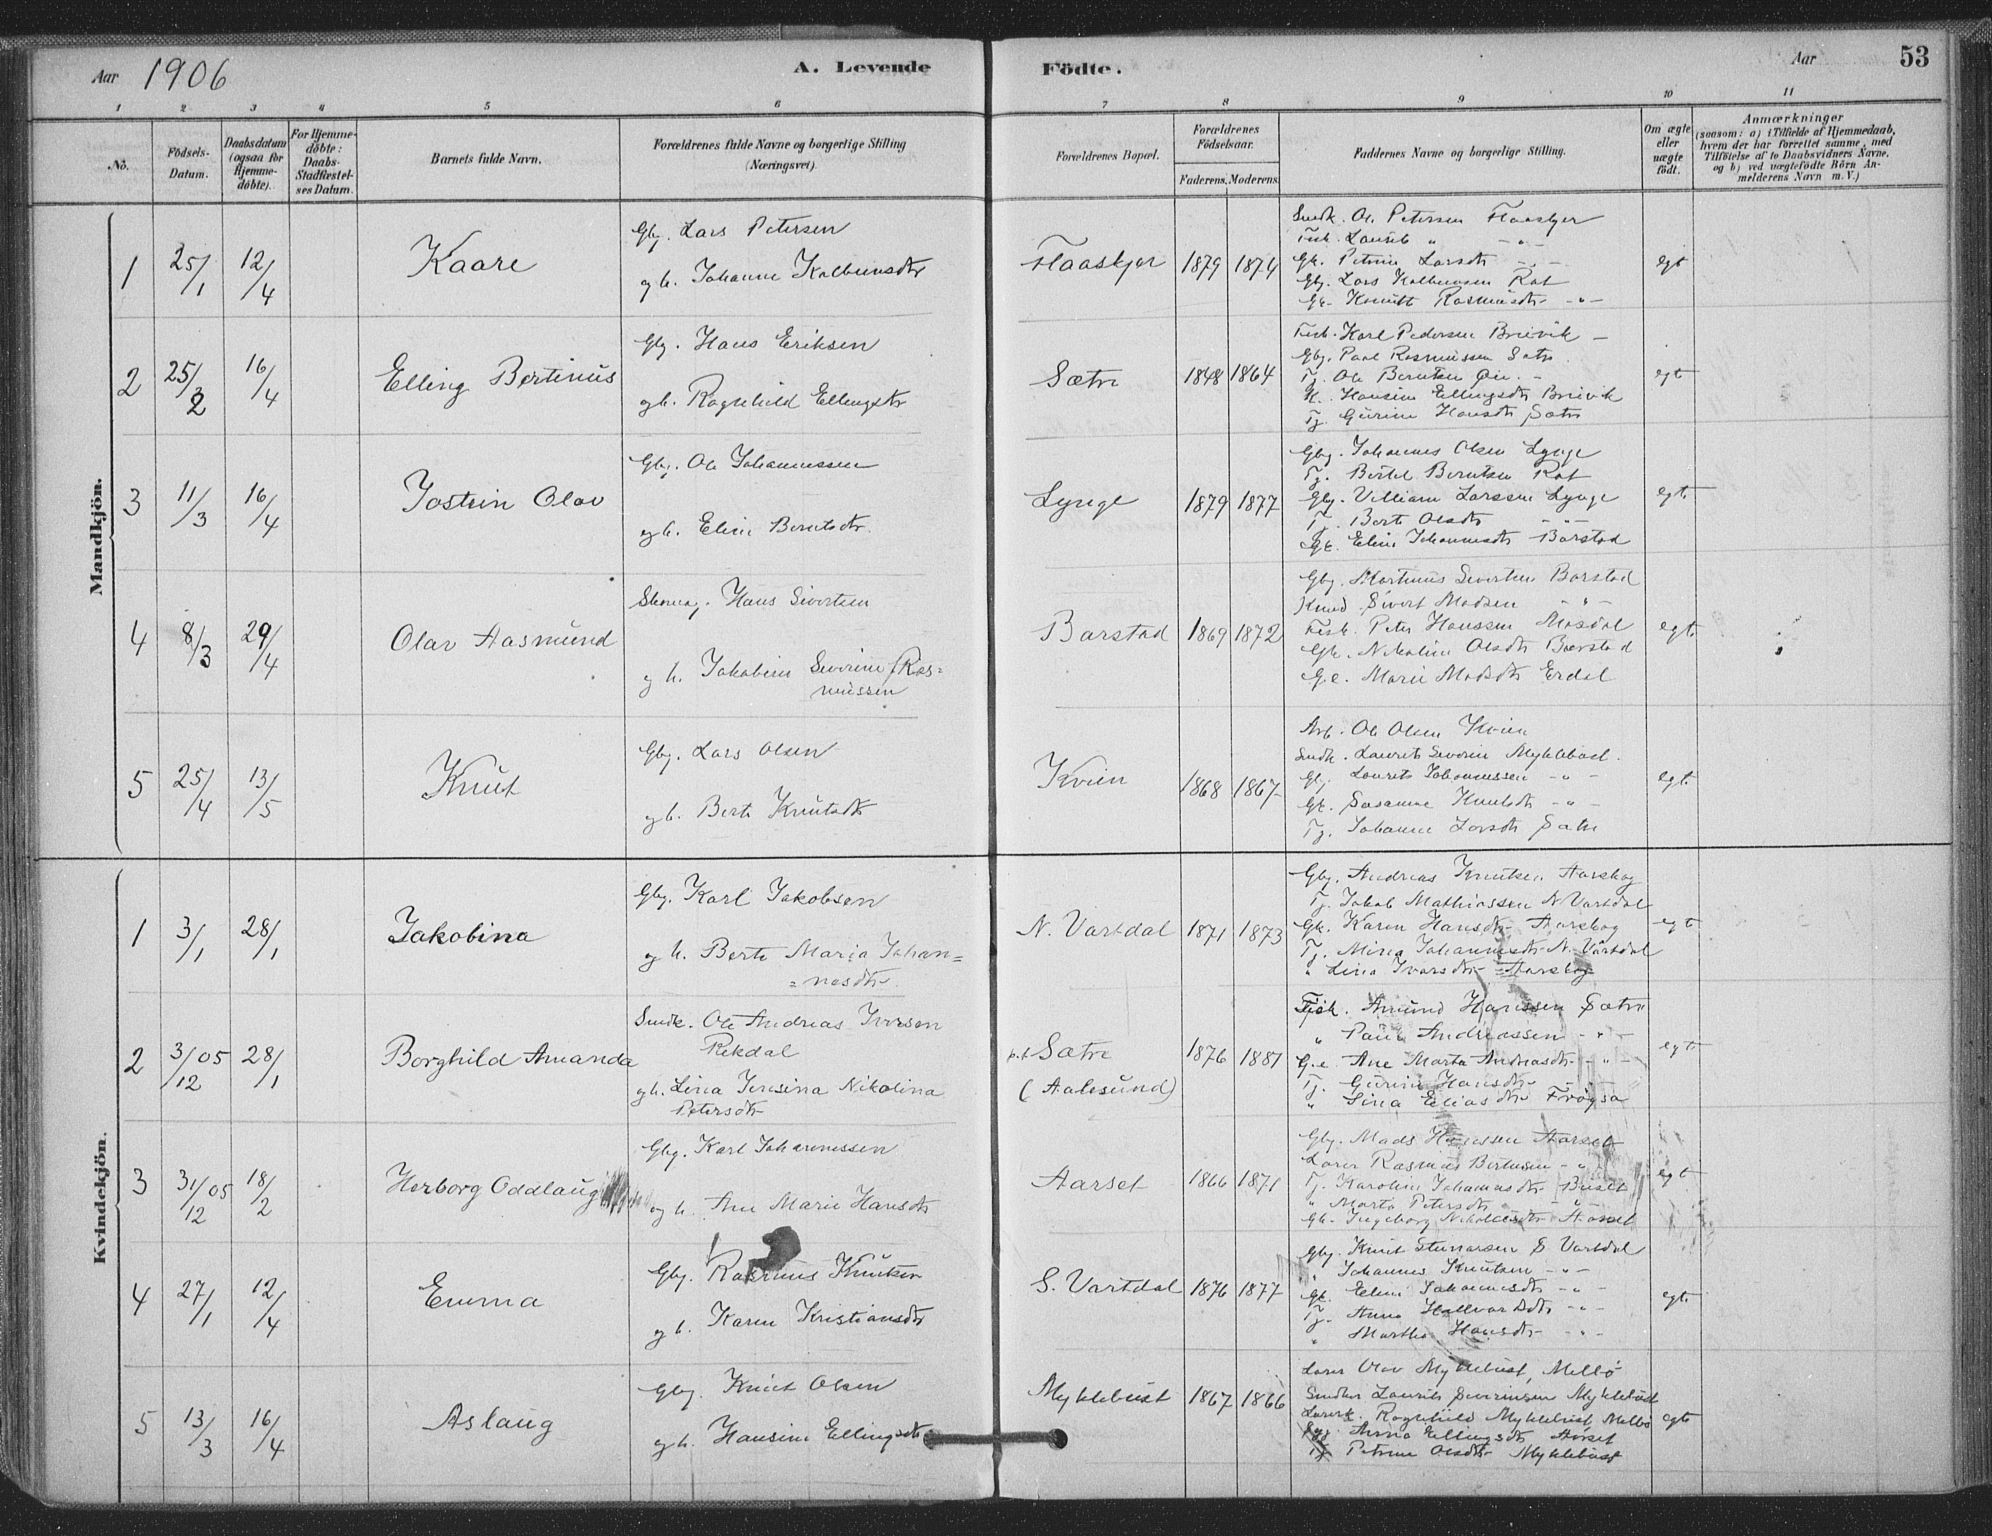 Aar 1906 A. Levende Födte. Aar 53
1 2 3 4 5 6 7 8 9 10 11
No.
Födsels-Datum.
Daabsdatum (ogsaa for Hjemme-döbte).
For Hjemme-döbte: Daabs-Stadfæstel-ses Datum.
Barnets fulde Navn.
Forældrenes fulde Navne og borgerlige Stilling (Næringsvei).
Forældrenes Bopæl.
Forældrenes Födselsaar.
Faderens. Moderens.
Faddernes Navne og borgerlige Stilling.
Om ægte eller uægte födt.
Anmærkninger
(saasom: a) i Tilfælde af Hjemmedaab,
hvem der har forrettet samme, med
Tilföielse af to Daabsvidners Navne,
og b) ved uægtefödte Börn An-
melderens Navn m. V.)
Mandkjön.
1 25/1 12/4 Kaare
Gbr. Lars Petersen
og h. Johanne Kolbeinsdtr
Flaaskjer 1879 1874
Smdk. Ole Petersen Flaaskjer
Fisk. Laurits " - " -
Gk. Petrine Larsdtr - " -
Gbr. Lars Kolbeinsen Rot
Gk. Rasmusdtr - " -
egt
2 25/2 16/4 Elling Bertinus
Gbr. Hans Eriksen
og h. Ragnhild Ellingsdtr
Sætre 1848 1864
Fisk. Karl Pedersen Breivik
Gbr. Paul Rasmussen Sætre
Tj. Ole Berntsen Øie
K. Hansine Ellingsdtr Breivik
Tj. Gurine Hansdtr Sætre
egt
3 11/3 16/4 Jostein Olav
Gbr. Ole Johannessen
og h. Eline Berntsdtr.
Lynge 1879 1877
Gbr. Johannes Olsen Lynge
Tj. Bertel Berntsen Rot
Gbr. Villiam Larssen Lynge
Tj. Berte Olsdtr - " -
Gk. Eline Johannesdtr Barstad
egt.
4 8/3 29/4 Olav Aasmund
Hans Sivertsen
og h. Jakobine Severine Ras=
mussen
Barstad 1869 1872
Gbr. Martinus Sivertsen Barstad
Sivert Madsen - " -
Fisk. Peter Hanssen Mosdal
Gk. Nikoline Olsdtr Barstad
G.e. Marie Madsdtr Erdal
egt.
5 25/4 13/5 Knut
Gbr. Lars Olsen
og h. Berte Knutsdtr
Kvien 1868 1867
Arb. Ole Olsen Kvien
Smdk. Laurits Severin Myklebust.
Gbr. Laurits Johannessen - " -
Gk. Susanne Knutsdtr - " -
Tj. Johanne Larsdtr Sætre
egt.
Kvindekjön.
1 3/1 28/1 Jakobina
Gbr. Karl Jakobsen
og h. Berte Maria Johan=
=nesdtr.
N. Vartdal 1871 1873
Gbr. Andreas Knutsen Aarskog
Tj. Jakob Mathiassen N. Vartdal
Gk. Karen Hansdtr Aarskog
Tj. Mina Johannesdtr N. Vartdal
" Lina Ivarsdtr Aarskog
egt
2 3/12 05 28/1 Borghild Amanda
Smdk. Ole Andreas Iversen
Rekdal
og h. Lina Jensina Nikolina
Petersdtr
p.t. Sætre
(Aalesund)
1876 1881
Fisk. Amund Hanssen Sætre
" Paul Andreassen - " -
G.e. Ane Marta Andreasdtr - " -
Tj. Gurine Hansdtr
" Lina Eliasdtr
egt
3 31/12 05 18/2 Herborg Oddlaug
Gbr. Karl Johannessen
og h. Ane Marie Hansdtr
Aarset 1866 1871
Gbr. Mads Hanssen Aarset
Lærer Rasmus Berntsen - " -
Tj. Karoline Johannesdtr
" Marta Petersdtr "
Gk. Ingeborg Aarset
egt
4 27/1 12/4 Emma
Gbr. Rasmus Knutsen
og h. Karen Kristiansdtr
S. Vartdal 1876 1877
Gbr. Knut S. Vartdal
" Johannes Knutsen - " -
Gk. Eline Johannesdtr - " -
Tj. Anne Hallvarddtr - " -
" Marthe Hansdtr - " -
egt.
5 13/3 16/4 Aslaug
Gbr. Knut Olsen
og h. Hansine Ellingsdtr
Myklebust 1867 1866
Lærer Olav Myklebust,
Smdker Laurits Severinsen Myklebust
Ragnhild Myklebust
Anna Ellingsdtr Aarset
Tj. Petrine Olsdtr Myklebust
egt.